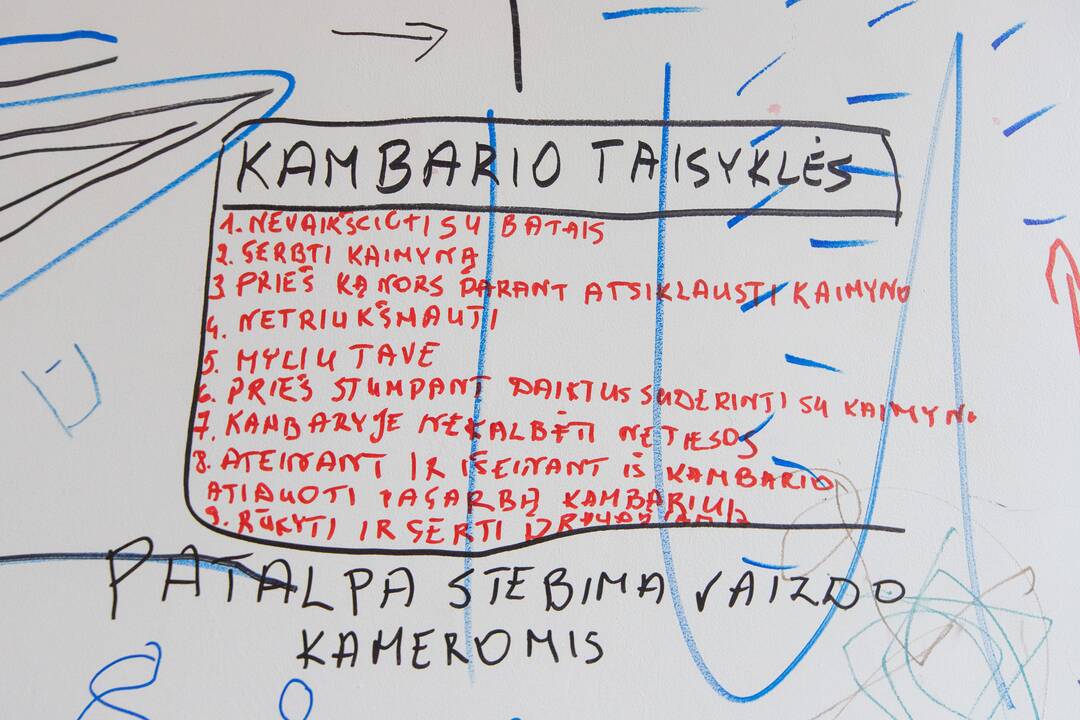 KAMBARIO TAISYKLĖS
1. NEVAIKŠCIOTI SU BATAIS
2. GERBTI KAIMYNĄ
3 PRIEŠ KĄNORS DARANT ATSIKLAUSTI KAIMYNO
4. NETRIUKŠMAUTI
5. MYLIU TAVE
6. PRIEŠ STUMPANT DAIKTUS SUDERINTI SU KAIMYNU
7. KANBARYJE NEKALBĖTI NETIESOS
8. ATEINANT IR IŠEINANT IŠ KAMBARIO
ATIDUOTI PAGARBĄ KAMBARIUI
9. RŪKYTI IR GERTI
PATALPA STEBIMA VAIZDO
KAMEROMIS